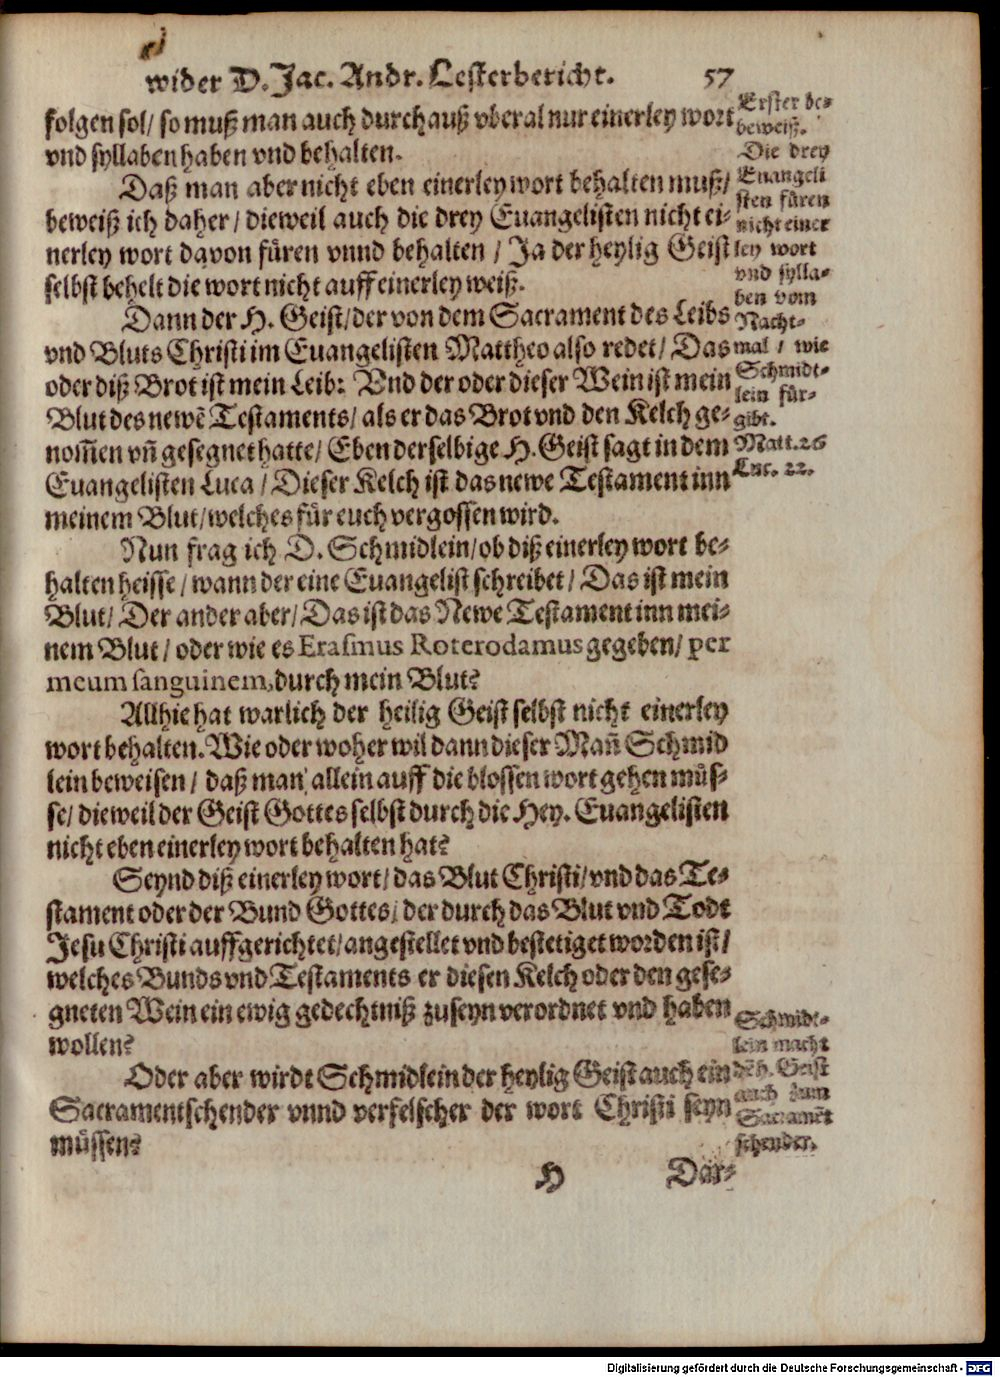 wider D. Jac. Andr. Lesterbericht. 57
folgen sol/ so muß man auch durchauß vberal nur einerley wort
vnd syllaben haben vnd behalten.
Daß man aber nicht eben einerley wort behalten muß/
beweiß ich daher/ dieweil auch die drey Euangelisten nicht ei-
nerley wort davon füren vnnd behalten / Ja der heylig Geist
selbst behelt die wort nicht auff einerley weiß.
Dann der H. Geist/ der von dem Sacrament des Leibs
vnd Bluts Christi im Euangelisten Mattheo also redet/ Das
oder diß Brot ist mein Leib: Vnd der oder dieser Wein ist mein
Blut des newẽ Testaments/ als er das Brot vnd den Kelch ge-
nom̃en vñ gesegnet hatte/ Eben derselbige H. Geist sagt in dem
Euangelisten Luca / Dieser Kelch ist das newe Testament inn
meinem Blut/ welches für euch vergossen wird.
Nun frag ich D. Schmidlein/ ob diß einerley wort be-
halten heisse/ wann der eine Euangelist schreibet/ Das ist mein
Blut/ Der ander aber/ Das ist das Newe Testament inn mei-
nem Blut/ oder wie es Erasmus Roterodamus gegeben/ per
meum sanguinem, durch mein Blut?
Allhie hat warlich der heilig Geist selbst nicht einerley
wort behalten. Wie oder woher wil dann dieser Mañ Schmid
lein beweisen / daß man allein auff die blossen wort gehen müs-
se/ dieweil der Geist Gottes selbst durch die Hey. Euangelisten
nicht eben einerley wort behalten hat?
Seynd diß einerley wort/ das Blut Christi/ vnd das Te-
stament oder der Bund Gottes/ der durch das Blut vnd Todt
Jesu Christi auffgerichtet/ angestellet vnd bestetiget worden ist/
welches Bunds vnd Testaments er diesen Kelch oder den gese-
gneten Wein ein ewig gedechtniß zuseyn verordnet vnd haben
wollen?
Oder aber wirdt Schmidlein der heylig Geist auch ein
Sacramentschender vnnd verfelscher der wort Christi seyn
müssen?
H Dar-
Erster be-
beweiß.
Die drey
Euangeli
sten füren
nicht einer
ley wort
vnd sylla-
ben vom
Nacht-
mal / wie
Schmidt-
lein für-
gibt.
Matt. 26
Luc. 22.
Schmidt-
lein macht
dẽ h. Geist
auch zum
Sacramẽt
schender.
Digitalisierung gefördert durch die Deutsche Forschungsgemeinschaft - DFG